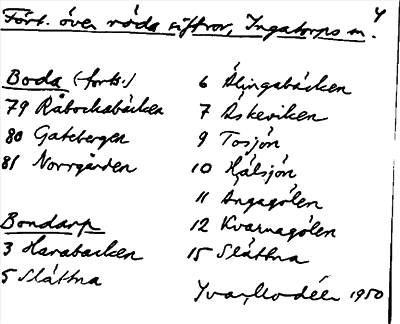 4
Förl. över röda siffror, Ingatorps sn.
Boda (forts.)
79 Råbockabäcken
80 Gatebergen
81 Norrgården
Bondarp
3 Harabacken
5 Slättna
6 Älingabäcken
7 Askeviken
9 Tosjön
10 Hålsjön
11 Angagölen
12 Kvarnagölen
15 Slättna
Yvar Modéer 1950